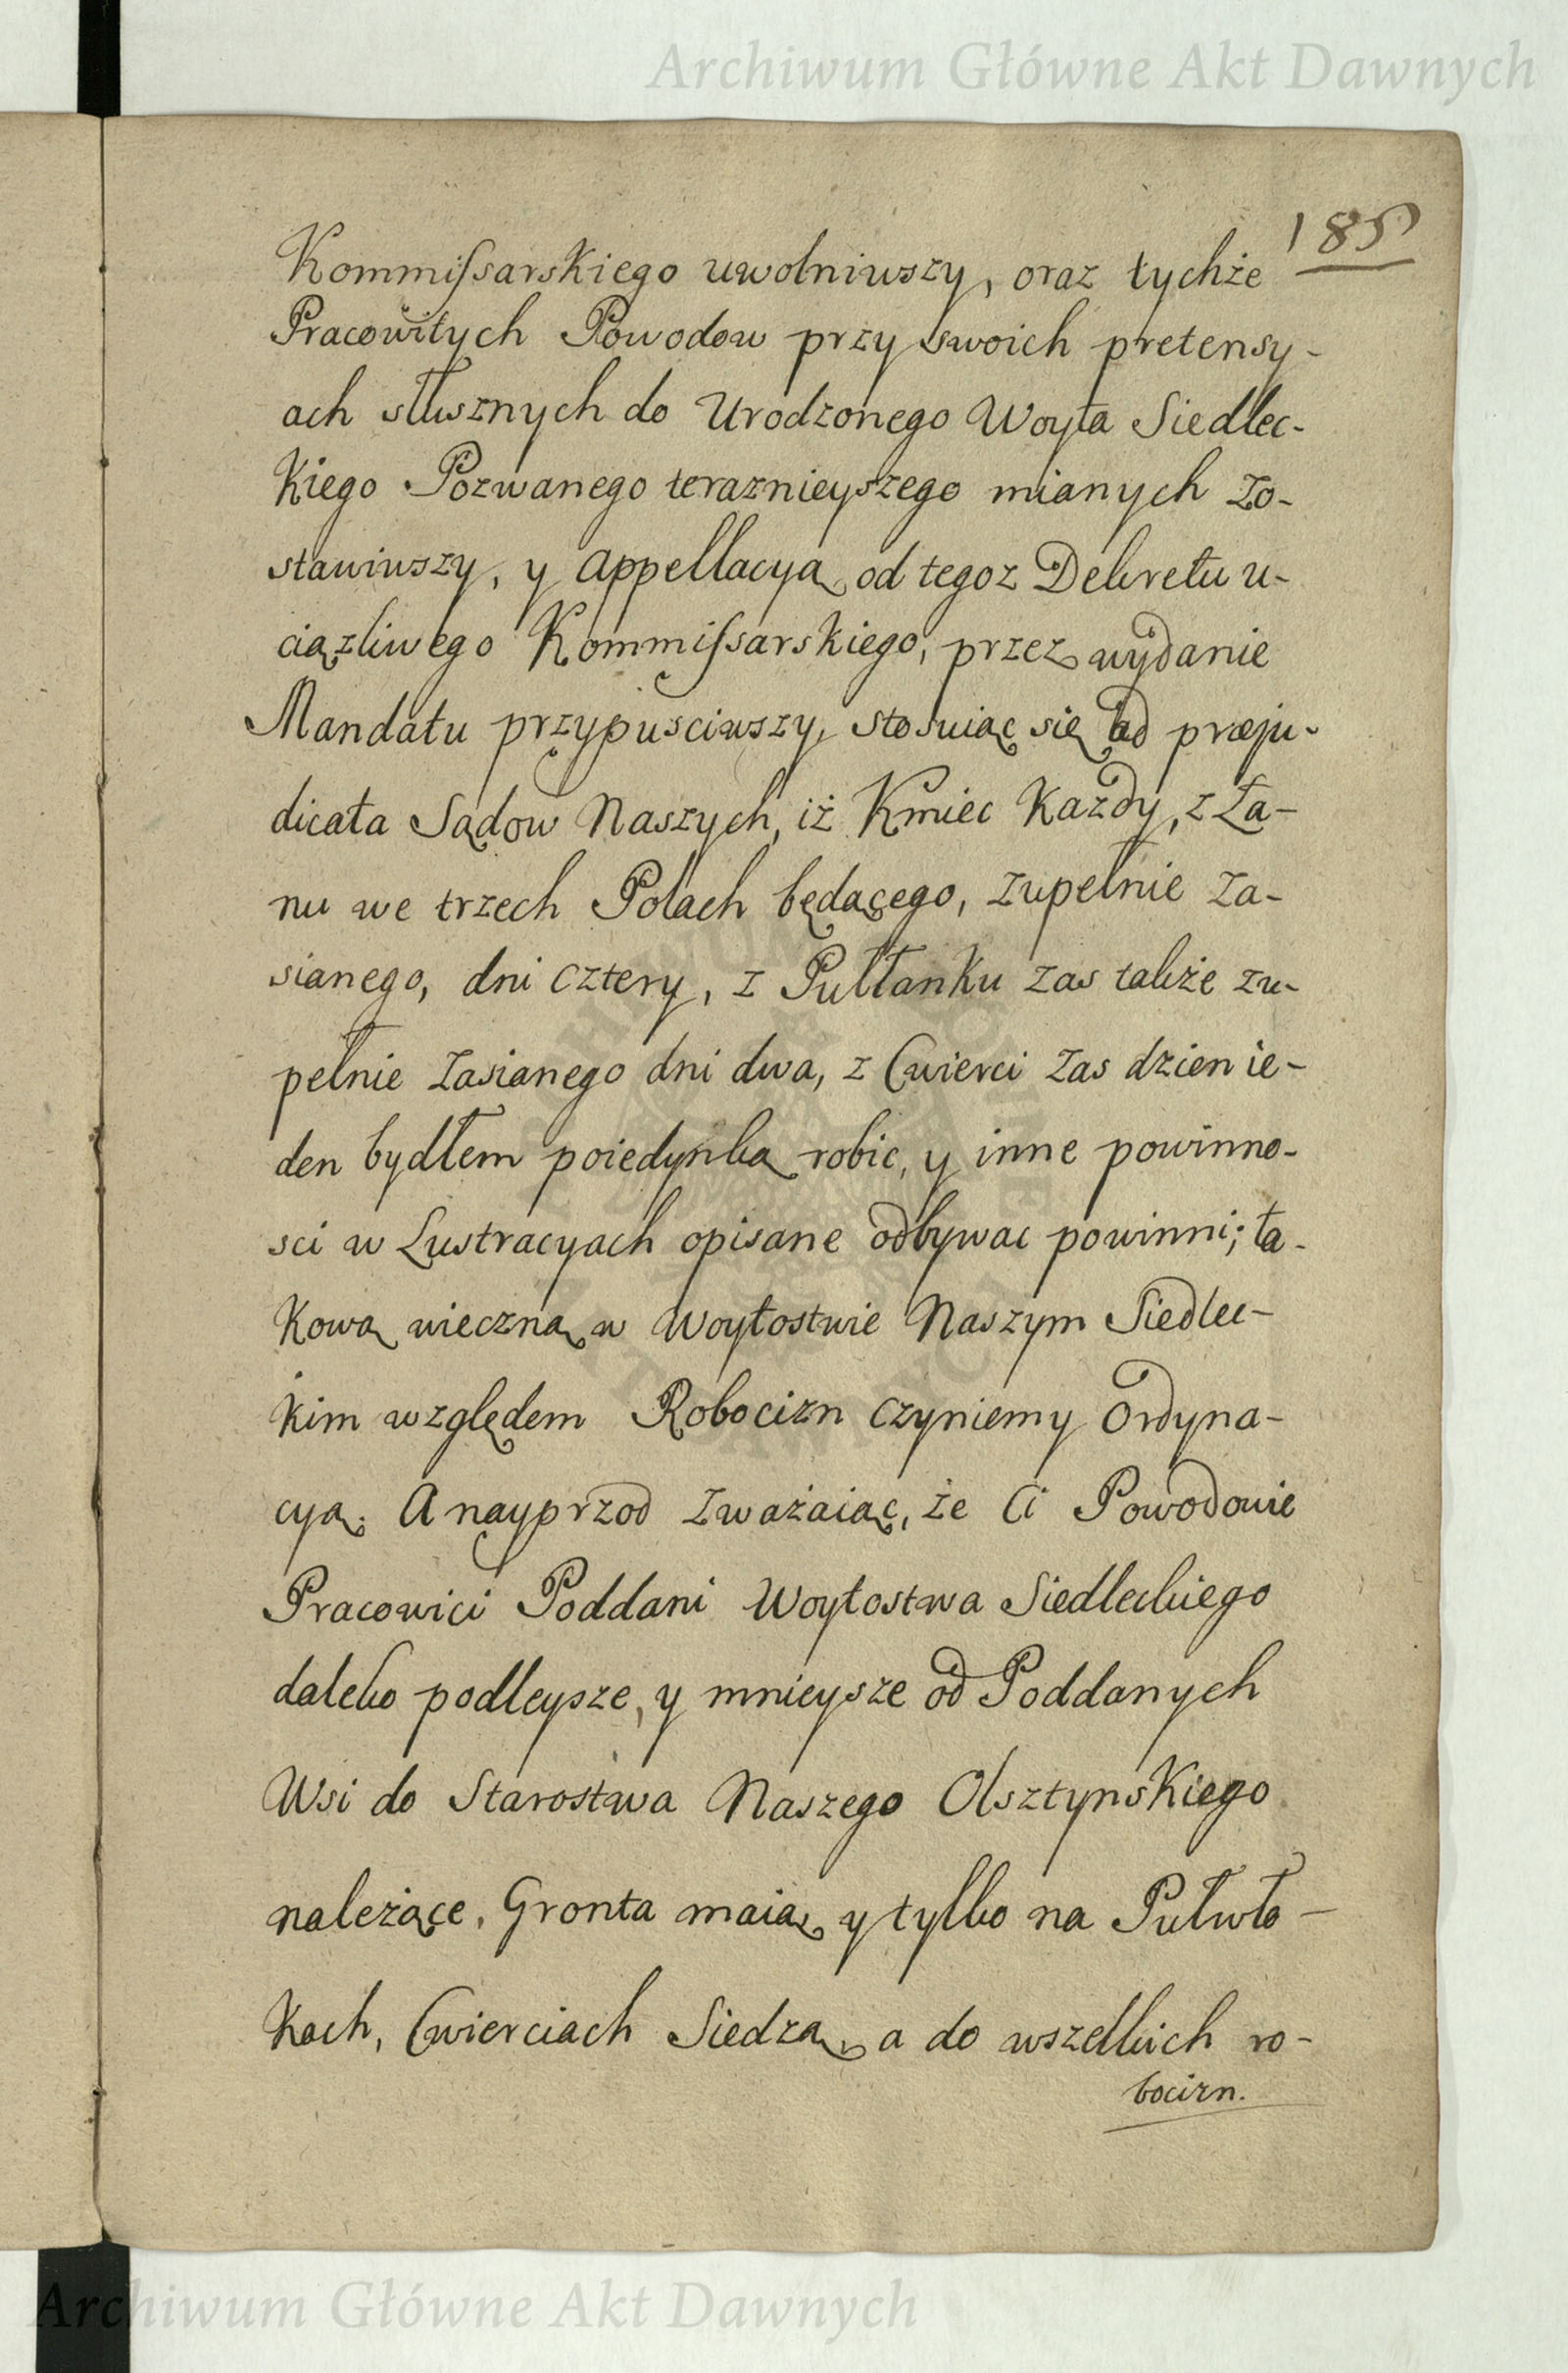 Archiwum Główne Akt Dawnych
185
Kommiſsarskiego uwolniwszy, oraz tychże
Pracowitych Powodow przy swoich pretensy-
ach słusznych do Urodzonego Woyta Siedlec-
kiego Pozwanego teraznieyszego mianych zo-
stawiwszy, y appellacyą od tegoz Dekretu u-
ciązliwego Kommiſsarskiego, przez wydanie
Mandatu przypusciwszy, stosuiąc się ad præju-
dicata Sądow Naszych, iż Kmiec Kazdy, z Ła-
nu we trzech Polach będącego, zupełnie za-
sianego, dni cztery, z Pułłanku zas także zu-
pełnie zasianego dni dwa, z Cwierci zas dzien ie-
den bydłem poiedynką robic, y inne powinno-
sci w Lustracyach opisane odbywac powinni; ta-
kową wieczną w Woytostwie Naszym Siedlec-
kim względem Robocizn czyniemy Ordyna-
cyą. A nayprzod zważaiąc, że Ci Powodowie
Pracowici Poddani Woytostwa Siedleckiego
daleko podleysze, y mnieysze od Poddanych
Wsi do Starostwa Naszego Olsztynskiego
należące, Gronta maią y tylko na Pułwło-
kach, Cwierciach Siedzą, a do wszelkich ro-
bocizn.
Archiwum Główne Akt Dawnych